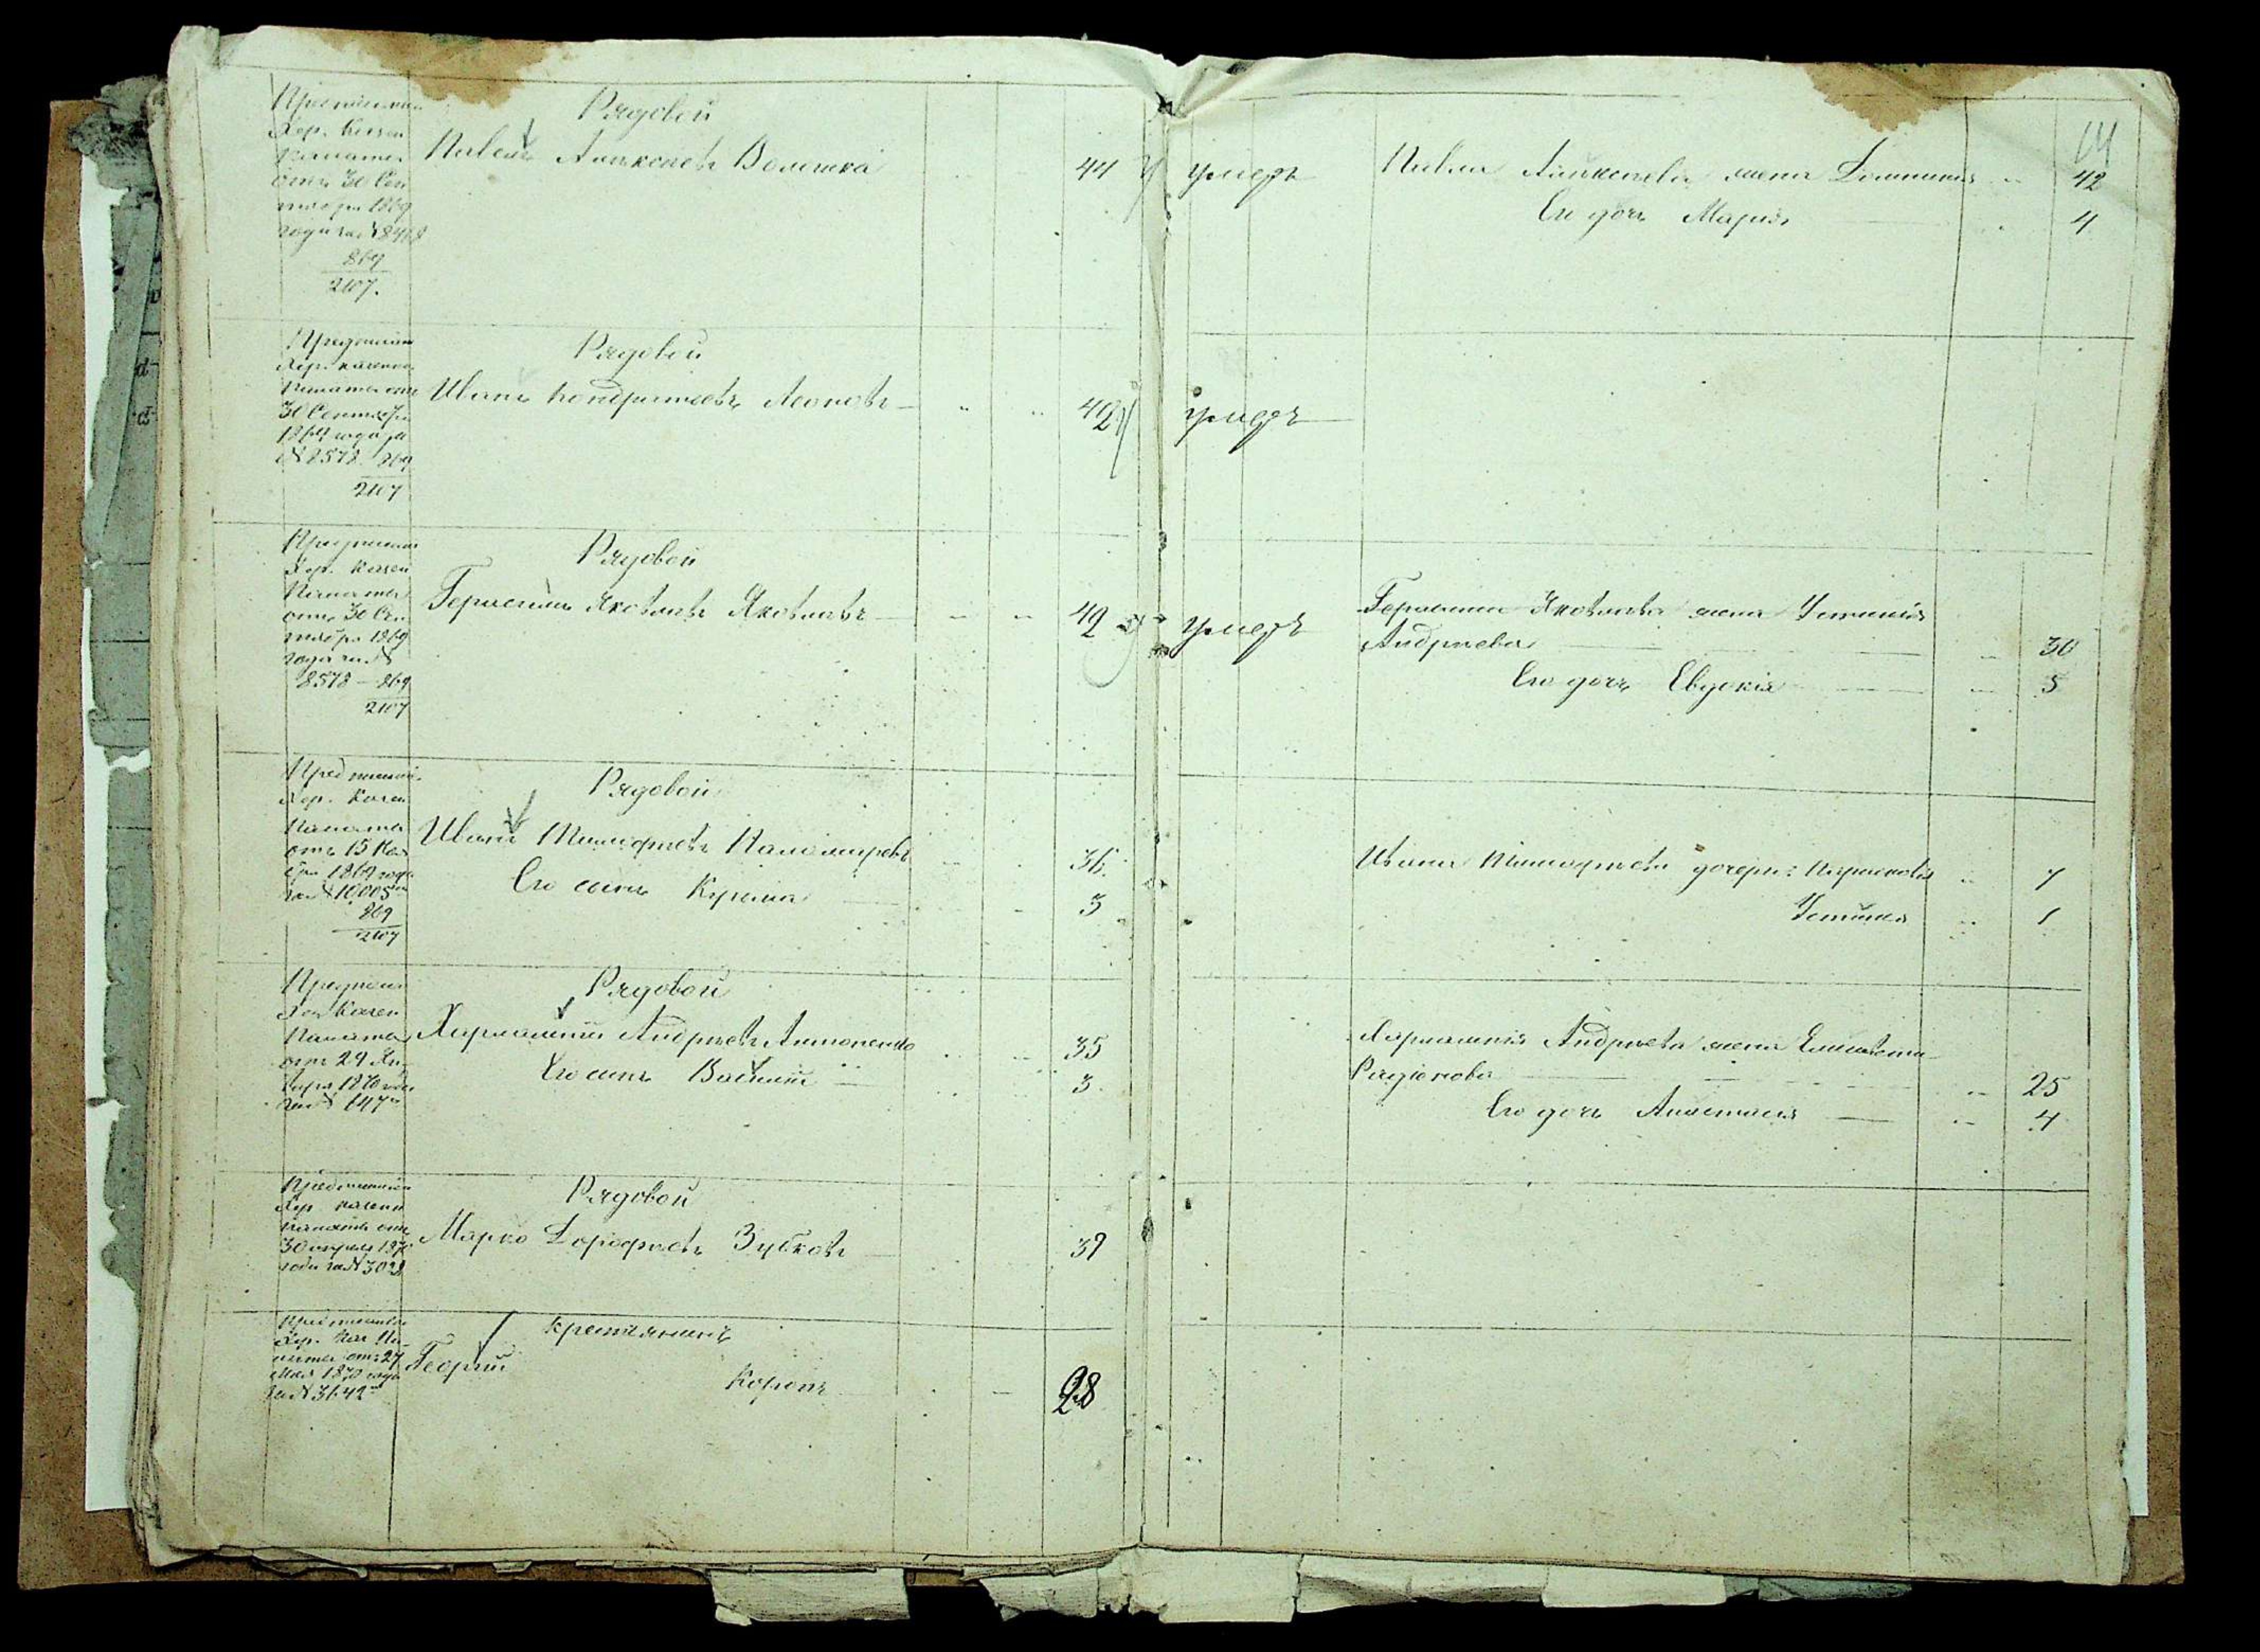 64
Предписан.
Хер. Казен
Палаты
отъ 30 Сен
тября 1869
года за № 8478
869
2107.
Рядовой
Павелъ Алексѣевъ Волошка 44
умеръ
Павла Алексѣева жена Домникія 42
Его дочь Марія 4
Предписан
Хер. казенно
Палаты отъ
30 Сентября
1869 года за
№ 8578 869
2107
Рядовой
Иванъ Кондратьевъ Леоновъ 42
умеръ
Предписан
Хер. Казен
Палаты
отъ 30 Сен
тября 1869
года за №
8578 — 869
2107
Рядовой
Герасимъ Яковлевъ Яковлевъ 42
умеръ
Герасима Яковлева жена Устинія
Андреева 30
Его дочь Евдокія 5
Предписані
Хер. Казен
Палаты
отъ 15 Ноя
бря 1869 года
за № 10,005
869
2107
Рядовой
Иванъ Тимофѣевъ Паламаревъ 36
Его сынъ Кузьма 3
Ивана Тимофѣева дочери: Парасковія 7
Устинія 1
Предписан
Хер Казен
Палаты
отъ 29 Ян
варя 1870 года
за № 647
Рядовой
Харлампій Андреевъ Антоненко 35
Его сынъ Василій 3
Харлампія Андреева жена Елисавета
Радіонова 25
Его дочь Анастасія 4
Предписаніе
Хер казенн
палаты отъ
30 апрѣля 1870
года за № 3028
Рядовой
Марко Дорофѣевъ Зубковъ 39
Предписаніе
Хер. Каз Па
латы отъ 27
Мая 1870 года
за № 3642
крестьянинъ
Георгій Коропъ 28